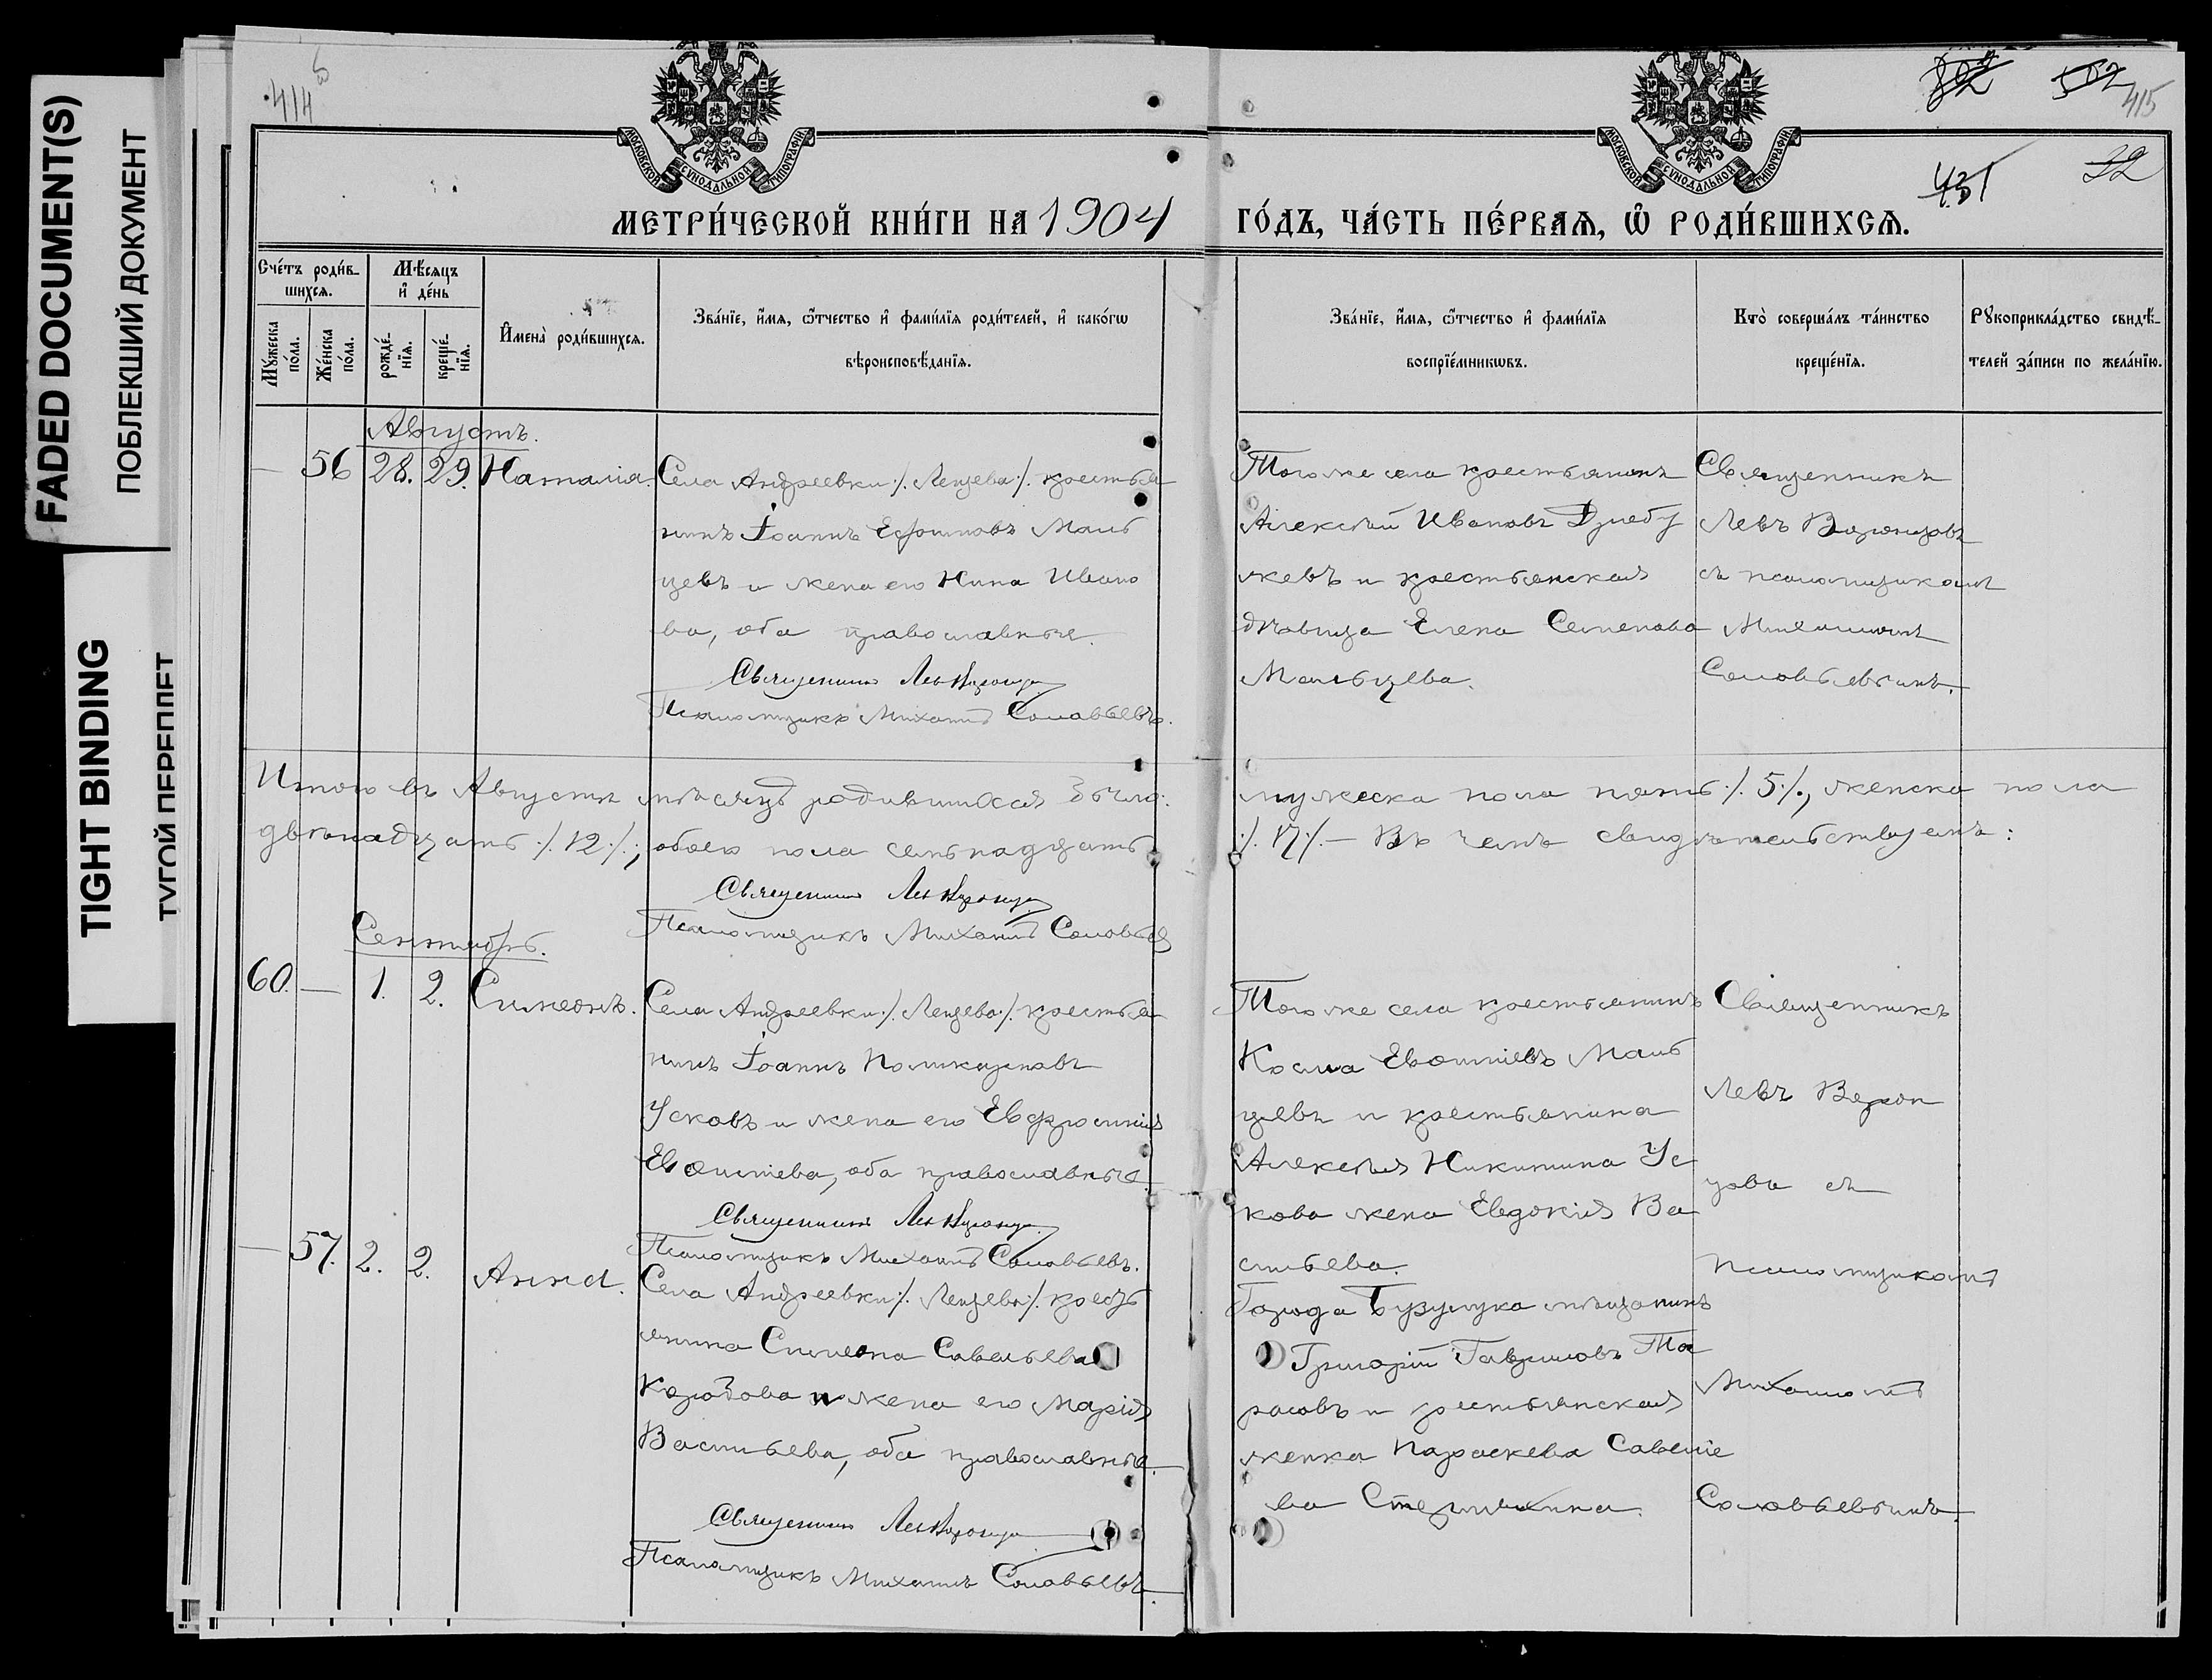 FADED DOCUMENT(S)
ПОБЛЕКШИЙ ДОКУМЕНТ
TIGHT BINDING
ТУГОЙ ПЕРЕПЛЕТ
414
415
431
32
МОСКОВСКОЙ СѴНОДАЛЬНОЙ ТИПОГРАФІИ
МОСКОВСКОЙ СѴНОДАЛЬНОЙ ТИПОГРАФІИ
МЕТРИ́ЧЕСКОЙ КНИ́ГИ НА 1904 ГО́ДЪ, ЧА́СТЬ ПЕ́РВАѦ, Ѡ҆ РОДИ́ВШИХСѦ.
Сче́тъ роди́в-
шихсѧ.
Мꙋ́жеска
по́ла.
Же́нска
по́ла.
Мѣ́сѧцъ
и҆ де́нь
рожде́-
нїѧ.
креще́-
нїѧ.
И҆мена̀ роди́вшихсѧ.
Зва́нїе, и҆́мѧ, ѻ҆́тчество и҆ фами́лїѧ роди́телей, и҆ како́гѡ
вѣроисповѣ́данїѧ.
Зва́нїе, и҆́мѧ, ѻ҆́тчество и҆ фами́лїѧ
воспрїе́мникѡвъ.
Кто̀ соверша́лъ та́инство
креще́нїѧ.
Рꙋкоприкла́дство свидѣ́-
телей за́писи по жела́нїю.
Августъ.
— 56 28. 29. Наталія.
Села Андреевки /. Лещева /. крестья
нинъ Іоаннъ Ефимовъ Маль
цевъ и жена его Нина Ивано
ва, оба православные.
Священникъ Левъ
Псаломщикъ Михаилъ Соловьевъ.
Того же села крестьянинъ
Алексѣй Ивановъ
жевъ и крестьянская
дѣвица Елена Семенова
Мальцева.
Священникъ
Левъ
съ псаломщикомъ
Михаиломъ
Соловьевымъ.
Итого въ Августѣ мѣсяцѣ родившихся было: мужеска пола пять /. 5 /., женска пола
двѣнадцать /. 12 /.; обоего пола семьнадцать /. 17 /. — Въ чемъ свидѣтельствуемъ:
Священникъ Левъ
Псаломщикъ Михаилъ Соловьев
Сентябрь.
60. — 1. 2. Симеонъ.
Села Андреевки /. Лещева /. крестья
нинъ Іоаннъ Поликарповъ
Усковъ и жена его Евфросинія
Евѳиміева, оба православные.
Священникъ Левъ
Псаломщикъ Михаилъ Соловьевъ.
Того же села крестьянинъ
Косма Евѳиміевъ Маль
цевъ и крестьянина
Алексѣя Никитина Ус
кова жена Евдокія Ва
сильева.
Священникъ
Левъ
съ
псаломщикомъ
Михаиломъ
Соловьевымъ.
— 57. 2. 2. Анна.
Села Андреевки /. Лещева /. кресть
янина Симеона Савельева
и жена его Марія
Васильева, оба православные.
Священникъ Левъ
Псаломщикъ Михаилъ Соловьевъ.
Города Бузулука мѣщанинъ
Григорій Гавриловъ Та
расовъ и крестьянская
женка Параскева Савелье
ва